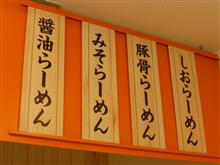 しおらーめん
豚骨らーめん
みそらーめん
醤油らーめん